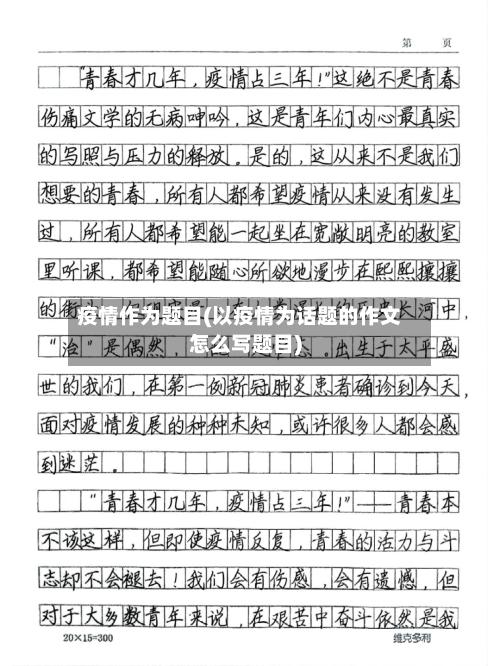 第 页
“青春才几年，疫情占三年！”这绝不是青春
伤痛文学的无病呻吟，这是青年们内心最真实
的写照与压力的释放。是的，这从来不是我们
想要的青春，所有人都希望疫情从来没有发生
过，所有人都希望能一起坐在宽敞明亮的教室
里听课，都希望能随心所欲地漫步在熙熙攘攘
的街 长河中，
疫情作为题目(以疫情为话题的作文
怎么写题目)
“治”是偶然， 。出生于太平盛
世的我们，在第一例新冠肺炎患者确诊到今天，
面对疫情发展的种种未知，或许很多人都会感
到迷茫。
“青春才几年，疫情占三年！”——青春本
不该这样，但即使疫情反复，青春的活力与斗
志却不会褪去！我们会有伤感，会有遗憾，但
对于大多数青年来说，在艰苦中奋斗依然是我
20×15=300 维克多利